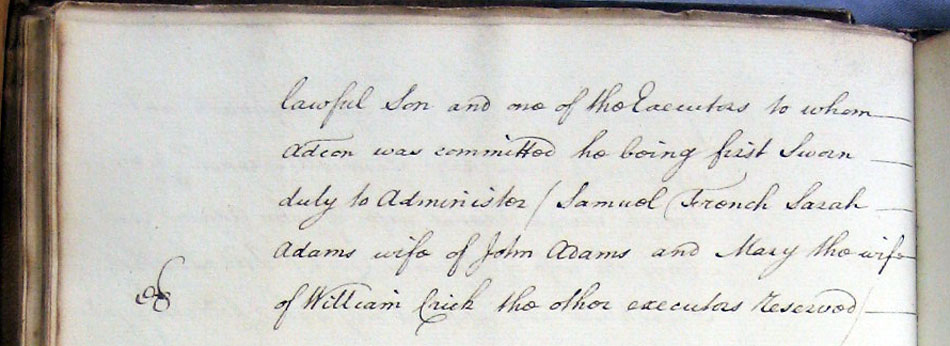 lawful Son and one of the Executors to whom
Adcon was committed he being first Sworn
duly to Administer / Samuel French Sarah
Adams wife of John Adams and Mary the wife
of William Crick the other executors reserved /